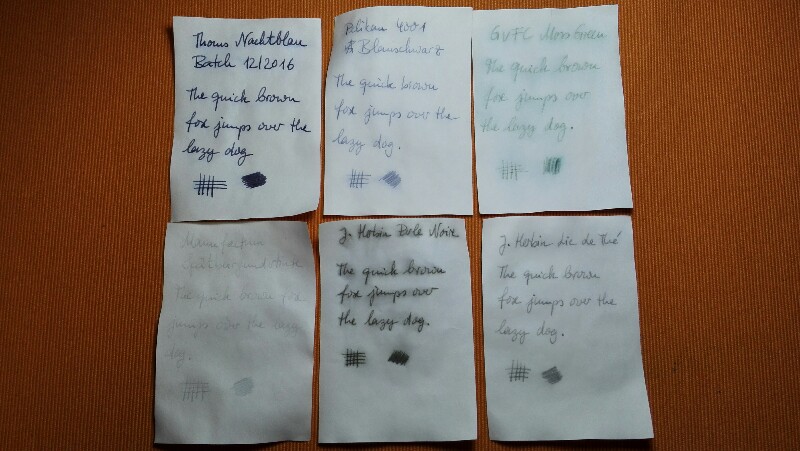 Thoms Nachtblau
Batch 12/2016
The quick brown
fox jumps over the
lazy dog
Pelikan 4001
Blauschwarz
The quick brown
fox jumps over the
lazy dog.
GvFC Moss Green
The quick brown
fox jumps over
the lazy dog.
The quick brown fox
jumps over the lazy
dog.
J. Herbin Perle Noire
The quick brown
fox jumps over
the lazy dog.
J. Herbin Lie de Thé
The quick brown
fox jumps over the
lazy dog.